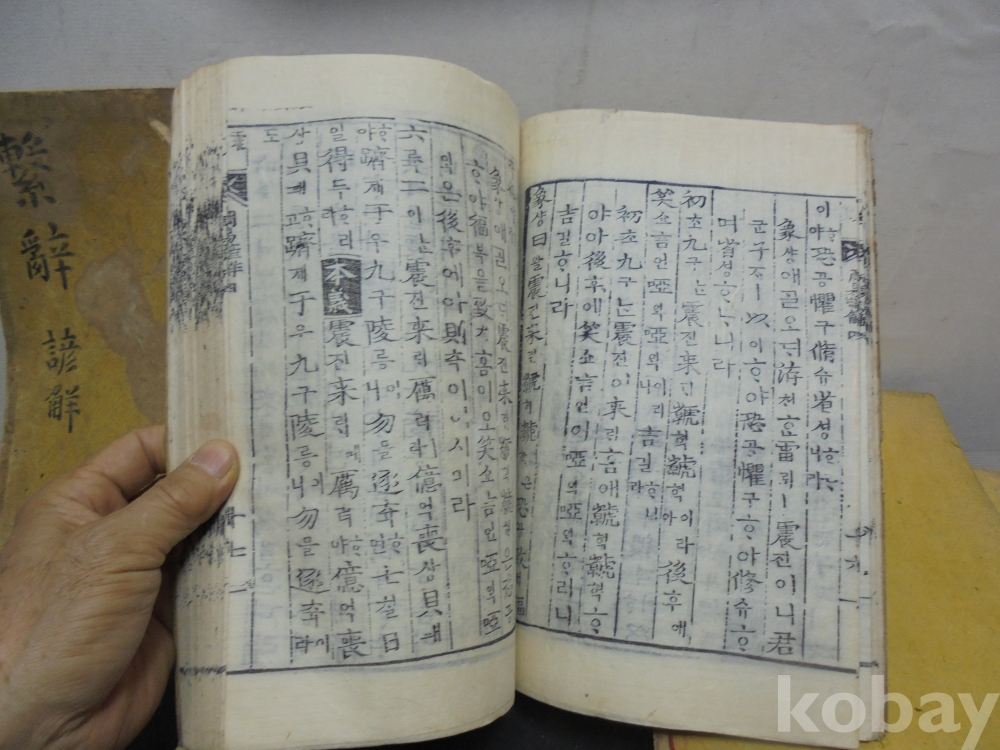 이ᄒᆞ야恐공懼구脩슈省셩ᄒᆞ니라
象샹애ᄀᆞᆯ오ᄃᆡ洊쳔ᄒᆞᆫ雷뢰ㅣ震진이니君
군子ᄌᆞㅣ以이ᄒᆞ야恐공懼구ᄒᆞ야脩슈ᄒᆞ
며省셩ᄒᆞᄂᆞ니라
初초九구ᄂᆞᆫ震진來ᄅᆡ虩혁虩혁이라아後후에
笑쇼言언啞ᄋᆡᆨ啞ᄋᆡᆨ이리니吉길ᄒᆞ니라
初초九구ᄂᆞᆫ震진이來ᄅᆡ홈애虩혁虩혁ᄒᆞ
야아後후에笑쇼言언이啞ᄋᆡᆨ啞ᄋᆡᆨᄒᆞ리니
吉길ᄒᆞ니라
象샹曰왈震진來ᄅᆡ虩혁虩은恐공致福
象샹애ᄀᆞᆯ오ᄃᆡ震진來ᄅᆡ虩虩혁은恐공
ᄒᆞ야福복을致티홈이오笑쇼言언啞ᄋᆡᆨ啞
ᄋᆡᆨ은後후에아則측이이시미라
六륙二이ᄂᆞᆫ震진來ᄅᆡ厲려라億억喪상貝패
ᄒᆞ야躋졔于우九구陵릉이니勿믈逐튝ᄒᆞ면七칠日
일得득ᄒᆞ리라本義震진來ᄅᆡ예厲려ᄒᆞ야億억喪
상貝패ᄒᆞ고躋졔于우九구陵릉이니勿믈逐튝이라
도
繫辭諺解
kobay